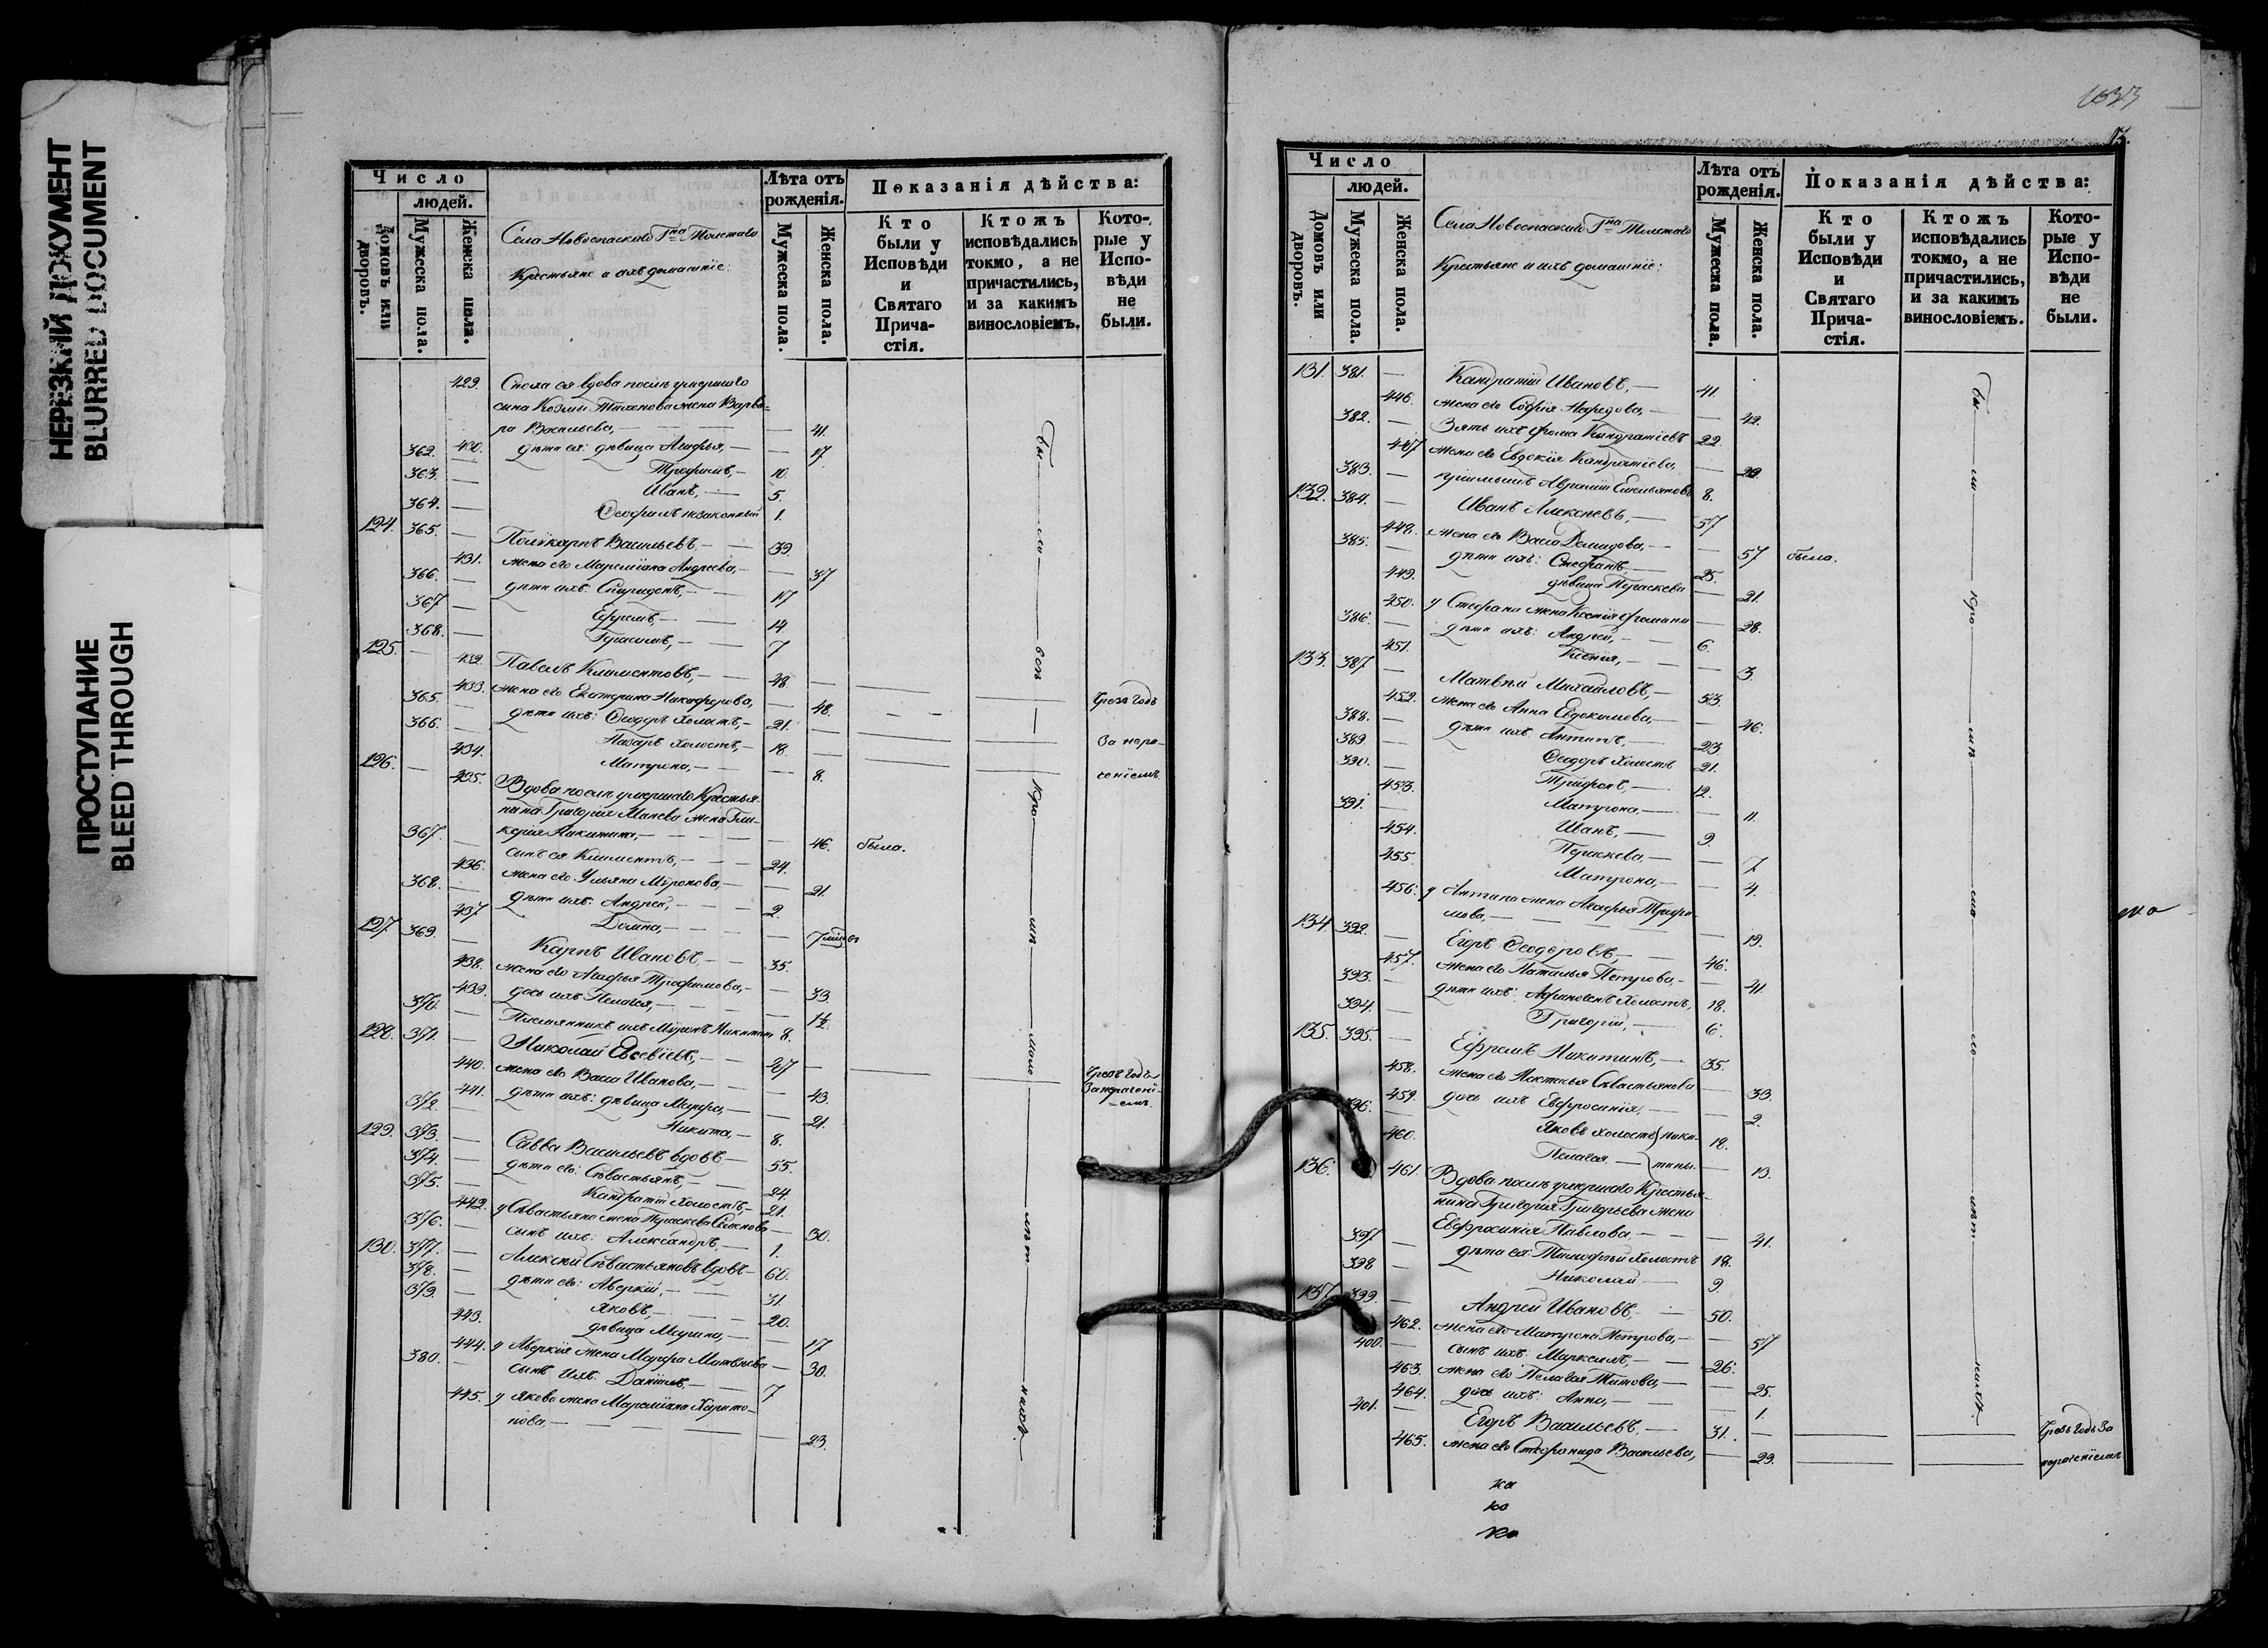 НЕРЕЗКИЙ ДОКУМЕНТ
BLURRED DOCUMENT
ПРОСТУПАНИЕ
BLEED THROUGH
Число
людей.
Домовъ или дворовъ.
Мужеска пола.
Женска пола.
Села Новоспаскаго Гна Толстаго
Крестьяне и ихъ домашніе:
Лѣта отъ рожденія.
Мужеска пола.
Женска пола.
Показанія дѣйства:
Кто были у Исповѣди и Святаго Прича-стія.
Ктожъ исповѣдались токмо, а не причастились, и за какимъ винословіемъ.
Кото-рые у Испо-вѣди не были.
429. вдова послѣ умершаго
сына Козмы Тихонова жена Варва-
ра Васильева, — 41.
362. 430. дѣти ея: дѣвица Агафья, — 17
363. — Трофимъ, — 10.
Иванъ, — 5.
364. — Ѳеофилъ незаконный 1.
124. 365. — Поликарпъ Васильевъ, — 39.
431. жена его Маремiана Андреева, — 37
366. — дѣти ихъ: Спиридонъ, — 17
367 — Ефремъ, — 14
368. — Герасимъ, — 7
125. — 432. Павелъ Климентовъ, — 48. — Чрезъ годъ
433. жена его Екатерина Никифорова, — 48.
365. — дѣти ихъ: Ѳеодоръ холостъ, — 21. За нера-
366. — Назаръ холостъ, — 18.
434. Матрона, — 8. ченіемъ
126. — 435. Вдова послѣ умершаго Крестья-
нина Григорія жена Гли-
керія Никитина, — 46. была.
367. — сынъ ея Климентъ, — 24.
436. жена его Ульяна Миронова, — 21.
368. — дѣти ихъ: Андрей, — 2.
437 Домна, — 7
127. 369. — Карпъ Ивановъ, — 35.
438. жена его Агафья Трофимова, — 33.
439. дочь ихъ Пелагея, — 1½.
370. — Племянникъ ихъ Миронъ Никитинъ 8.
128. 371. — Николай Евсевіевъ, — 47 —
440. жена его Васса Иванова, — 43. Чрезъ годъ
441. дѣти ихъ: дѣвица Марфа, — 21. За нерачені-
372. — Никита, — 8. -емъ.
129. 373. — Савва Васильевъ вдовъ — 55.
374. — дѣти его: Севастьянъ, — 24.
375. — Кандратій холостъ, — 21.
442. у Севастьяна жена Параскева Семенова — 30.
376. — сынъ ихъ: Александръ, — 1.
130. 377. — Алексѣй Севастьяновъ вдовъ — 60.
378. — дѣти его: Аверкій, — 31.
379. — Яковъ, — 20.
443. дѣвица Марина, — 17
444. у Аверкія жена Марфа Матвѣева — 30.
380. — сынъ ихъ: Даніилъ, — 7
445. у Якова жена Маремiана Харито-
нова, — 23.
Бы — ли — всѣ — кро — мѣ — мало — лѣт — нихъ.
1033
13.
Число
людей.
Домовъ или дворовъ.
Мужеска пола.
Женска пола.
Села Новоспаскаго Гна Толстаго
Крестьяне и ихъ домашніе:
Лѣта отъ рожденія.
Мужеска пола.
Женска пола.
Показанія дѣйства:
Кто были у Исповѣди и Святаго Прича-стія.
Ктожъ исповѣдались токмо, а не причастились, и за какимъ винословіемъ.
Кото-рые у Испо-вѣди не были.
131. 381. — Кандратій Ивановъ, — 41.
446. жена его Софія — 42.
382. — Зять ихъ Фома Кандратіевъ 22.
447 жена его Евдокія Кандратіева, — 22.
383. — пріимышъ Авраамій Емельяновъ 8.
132. 384. — Иванъ Алексѣевъ, — 57
448. жена его Васса Демидова, — 57 была.
385. — дѣти ихъ: Стефанъ, — 25.
449. дѣвица Параскева — 21.
450. у Стефана жена Ксенія Фомина — 28.
386. — дѣти ихъ: Андрей, — 6.
451. Ксенія, — 3.
133. 387 — Матвѣй Михайловъ, — 53.
452. жена его Анна Евдокимова, — 46.
388. — дѣти ихъ: Антипъ, — 23.
389. — Ѳеодоръ холостъ 21.
390. — Трифонъ, — 12.
453. Матрона, — 11.
391. — Иванъ, — 9.
454. Параскева, — 7
455. Матрона, — 4.
456. у Антипа жена Агафья Трофи-
мова, — 19.
134. 392. — Егоръ Ѳеодоровъ, — 46.
457. жена его Наталья Петрова, — 41.
393. — дѣти ихъ: холостъ, 18.
394. — Григорій, — 6.
135. 395. — Ефремъ Никитинъ, — 35.
458. жена его Настасья Севастьянова — 33.
459. дочь ихъ Евфросинія, — 2.
396. — Яковъ холостъ Ники- 18.
460. Пелагея — тины. — 13.
136. 461. Вдова послѣ умершаго Крестья-
нина Григорія Григорьева жена
Евфросинія Павлова — 41.
397 — дѣти ея: Тимофѣй холостъ 18.
398 — Николай — 9.
137. 399. — Андрей Ивановъ, — 50.
462. жена его Матрона Петрова, — 57
400. — сынъ ихъ: Маркеллъ, — 26.
463. жена его Пелагея Титова, — 25.
464. дочь ихъ: Анна, — 1.
401. — Егоръ Васильевъ, — 31. — Чрезъ годъ За
465. жена его Стефанида Васильева, — 29. нераченіемъ
Бы — ли — кро — мѣ — мало — лѣт — нихъ.